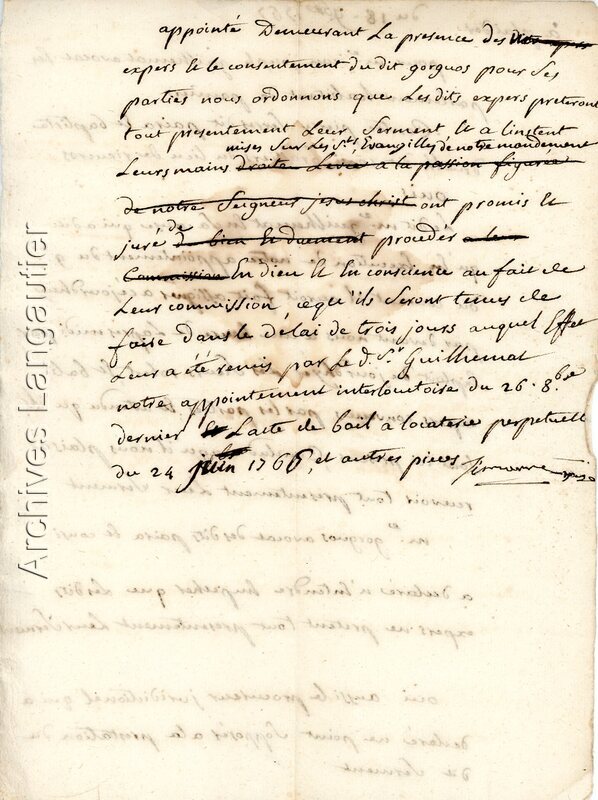 appointé Demeurant La presence des dits expers
expers Et le consentement du dit gorguos pour Ses
parties nous ordonnons que Les dits expers preteront
tout presentement Leur Serment, Et a Linstent
mises Sur Les Sts Evangilles de notre mandement
Leurs mains droite Levée a la passion figuree
de notre Seigneur jesus christ ont promis Et
juré de bien Et duement procedér a leur
Commission En dieu Et En conscience au fait de
Leur commission, ce qu'ils Seront tenus de
faire dans le délai de trois jours auquel Effet
Leur a été remis par Le d. Sr Guilhemat
notre appointement interlocutoire du 26. 8bre
dernier Et Lacte de bail à locaterie perpetuelle
du 24 juin 1766, et autres pieces
Archives Langautier